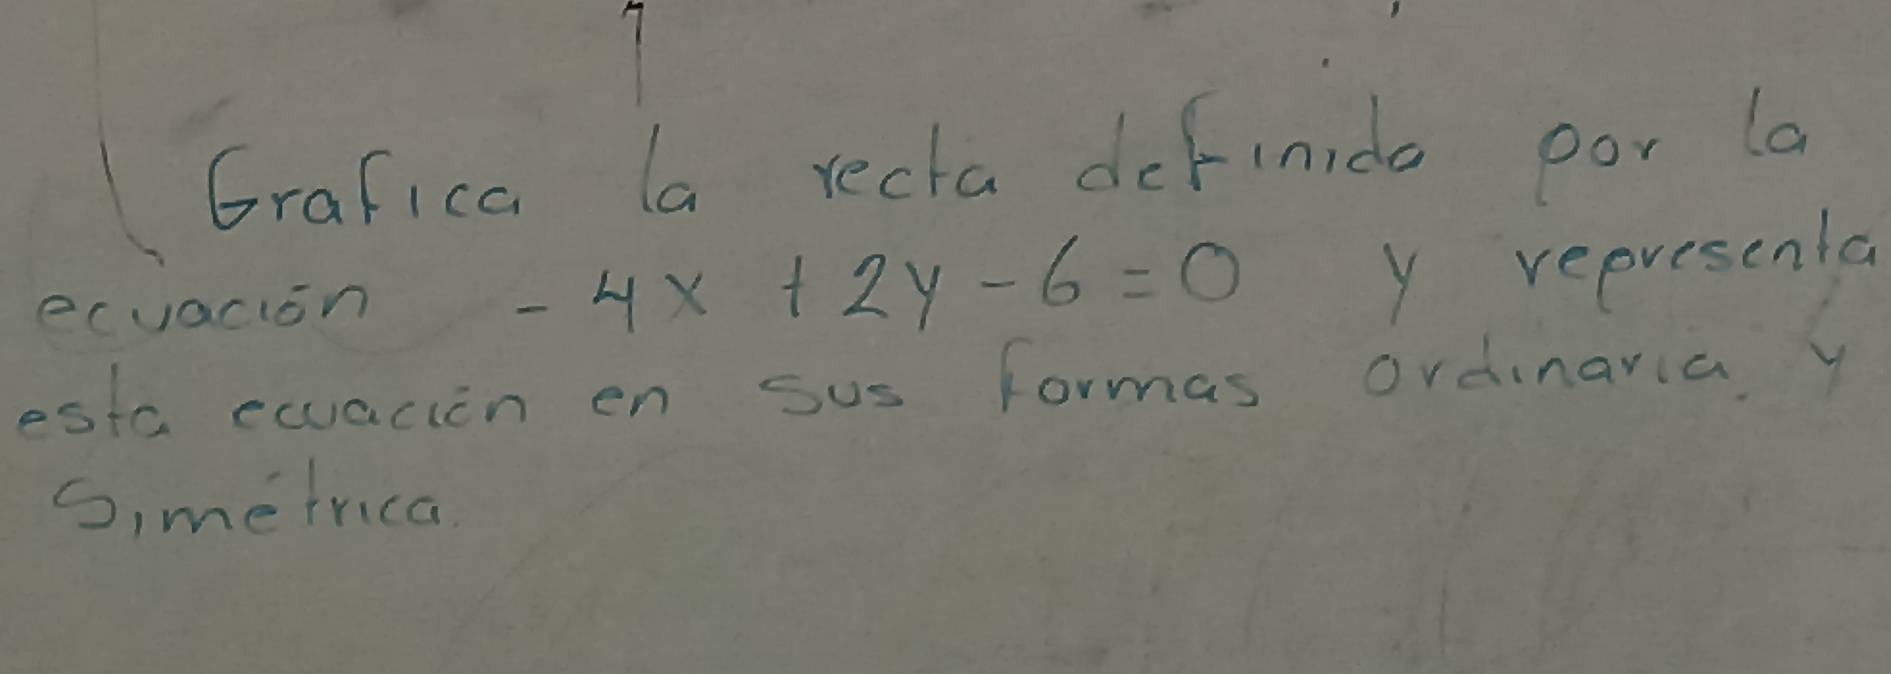 Grafica la recta definida por la
ecuación - 4x + 2y - 6 = 0 y representa
esta ecuación en sus formas ordinaria y
simétrica.